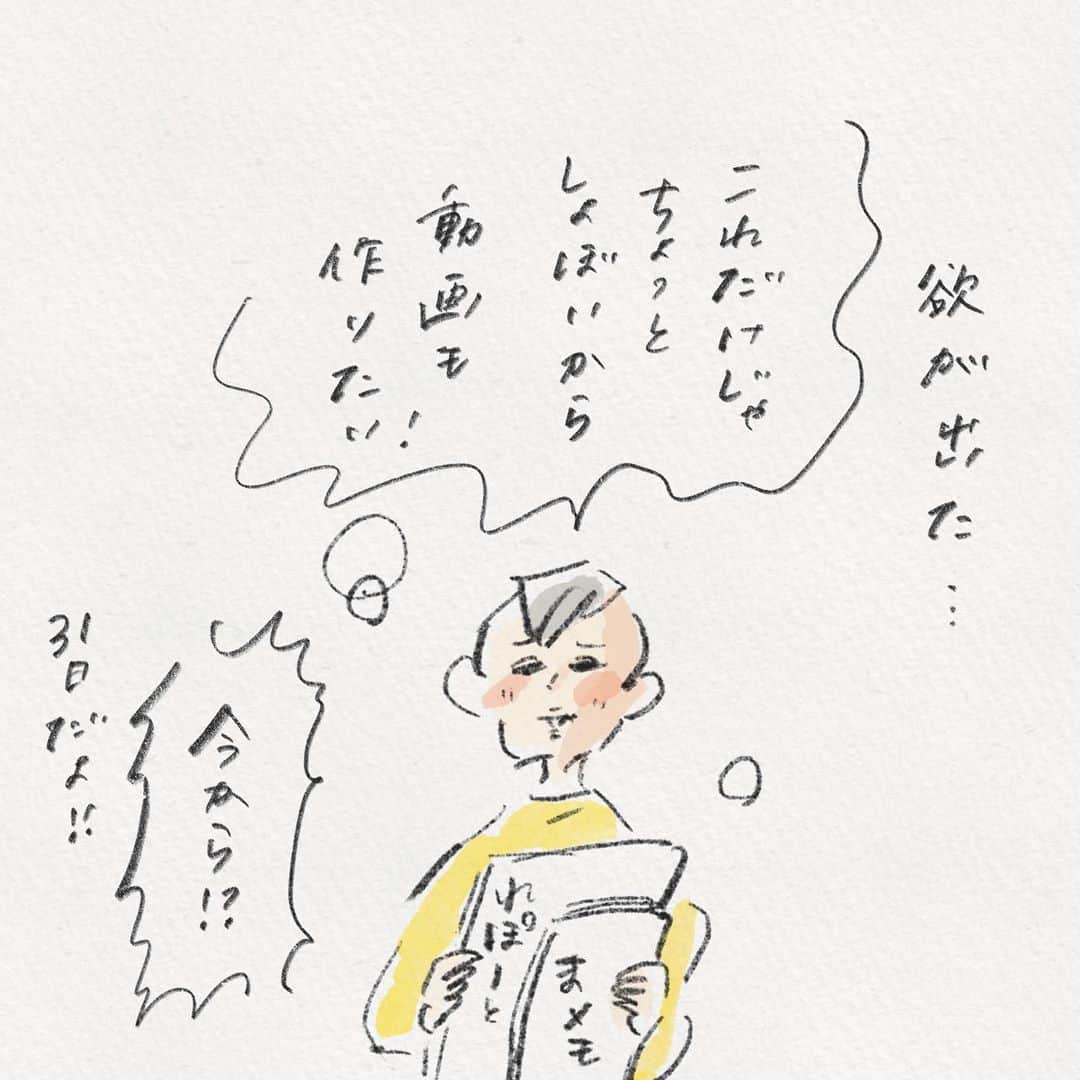 欲が出た…
これだけじゃ
ちょっと
しょぼいから
動画も
作りたい!
今から!?
31日だよ!!
れぽーと
まメモ